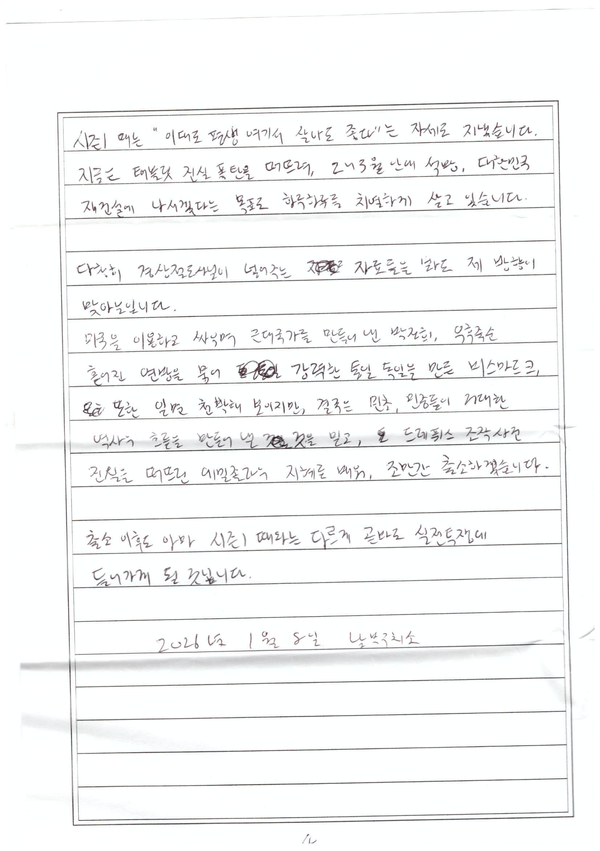 시즌1 때는 "이대로 평생 여기서 살아도 좋다"는 자세로 지냈습니다.
지금은 태블릿 진실 폭탄을 터뜨려, 2나3월 난에 석방, 대한민국
재건설에 나서겠다는 목표로 하루하루를 치열하게 살고 있습니다.
다행히 경산절도사님이 넣어주는 자료들을 봐도 제 방향이
맞아보입니다.
미국을 이용하고 싸우며 근대국가를 만들어 낸 박정희, 우후죽순
흩어진 연방을 묶어 강력한 통일 독일을 만든 비스마르크,
또한 일면 천박해 보이지만, 결국은 민중, 민중들이 거대한
역사의 흐름을 만들어 낸 것을 믿고, 드레퓌스 조작사건
진실을 터뜨린 에밀졸라의 지혜를 배워, 조만간 출소하겠습니다.
출소 이후도 아마 시즌1 때와는 다르게 곧바로 실전투쟁에
들어가게 될 것입니다.
2026년 1월 8일 남부구치소